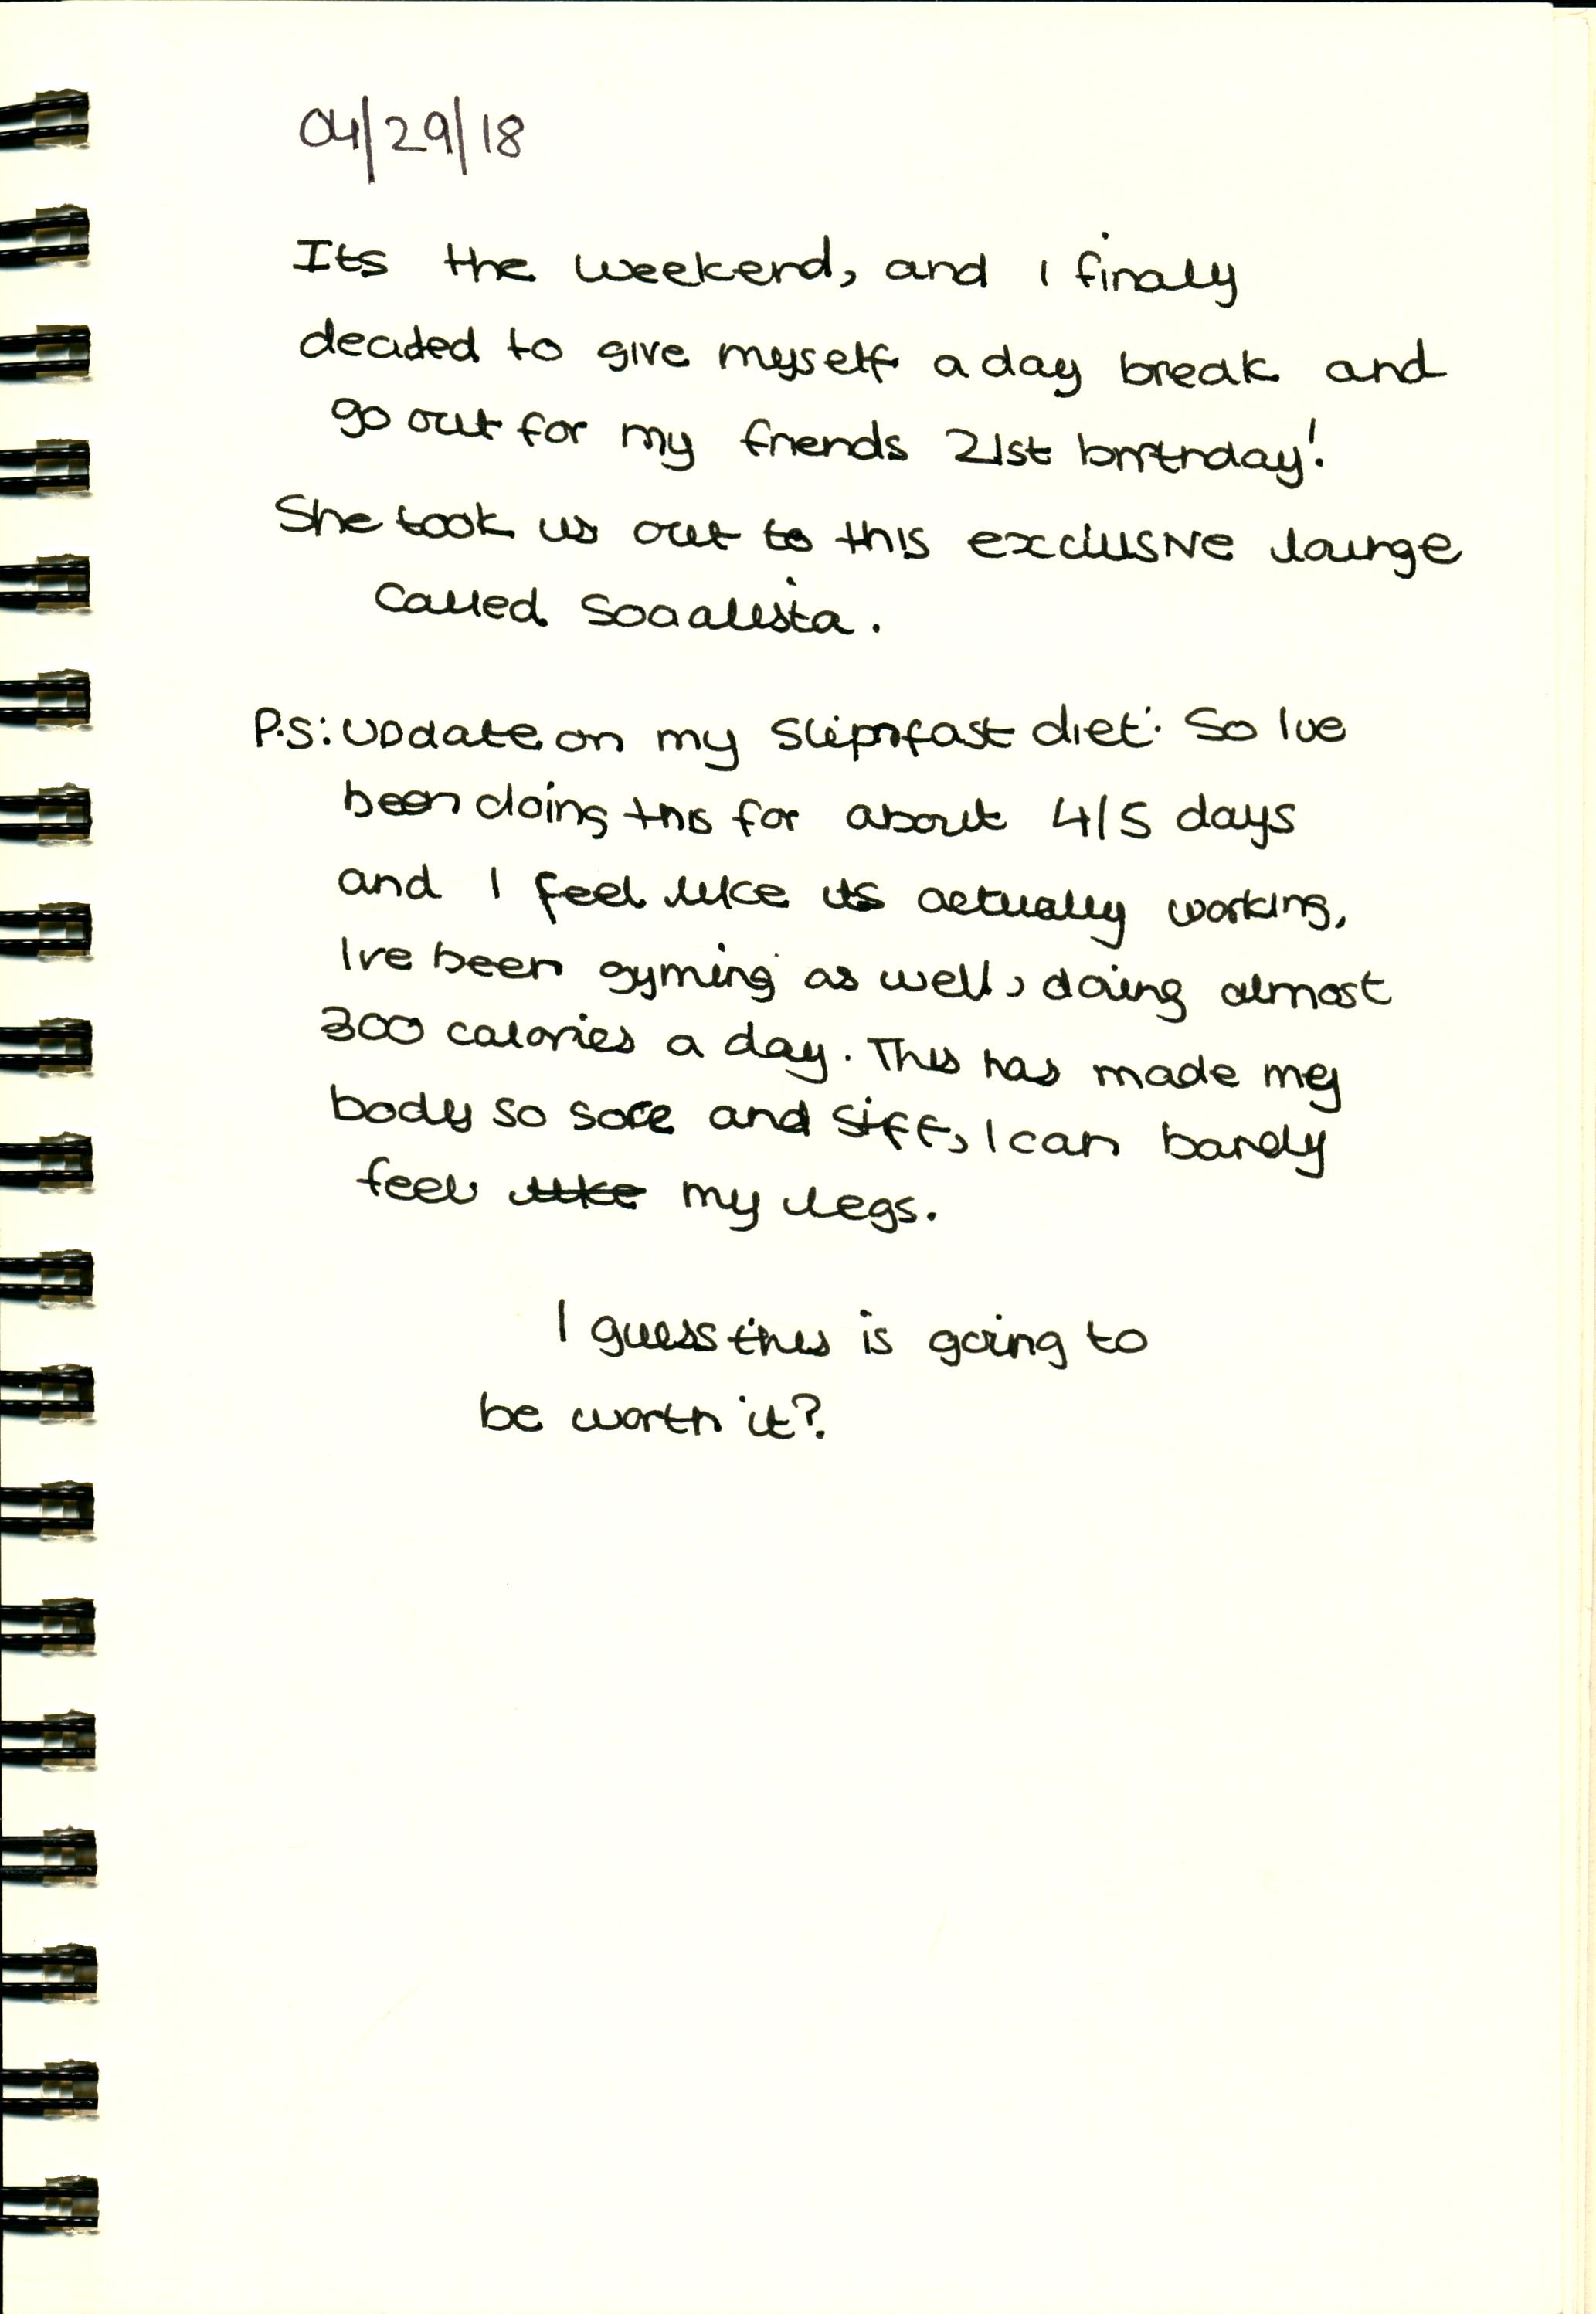 04/29/18
Its the weekend, and I finaly
decided to give myself a day break and
go out for my friends 21st birthday!
She took us out to this exclusive lounge
called Socialista.
P.S: Update on my slipnfast diet: So Ive
been doing this for about 4/5 days
and I feel like its actually working,
Ive been gyming as well, doing almost
300 calories a day. This has made my
body so sore and siff, I can barely
feel like my legs.
I guess this is going to
be worth it?